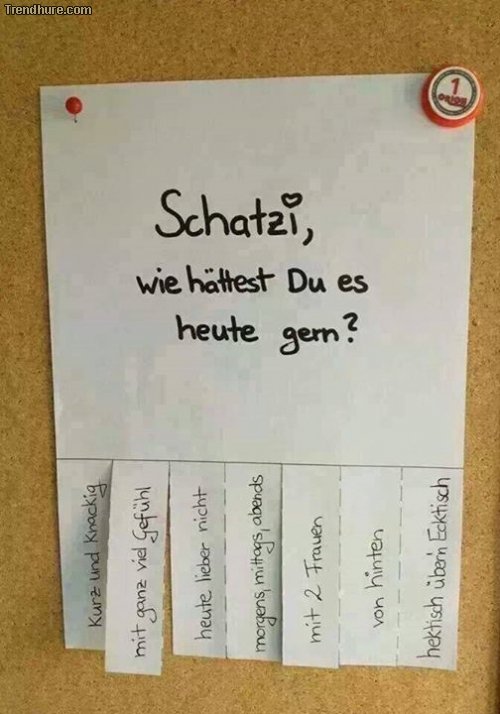 Trendhure.com
1
Schatzi,
wie hättest Du es
heute gern?
kurz und knackig
mit ganz viel Gefühl
heute lieber nicht
morgens, mittags, abends
mit 2 Frauen
von hinten
hektisch über'n Ecktisch